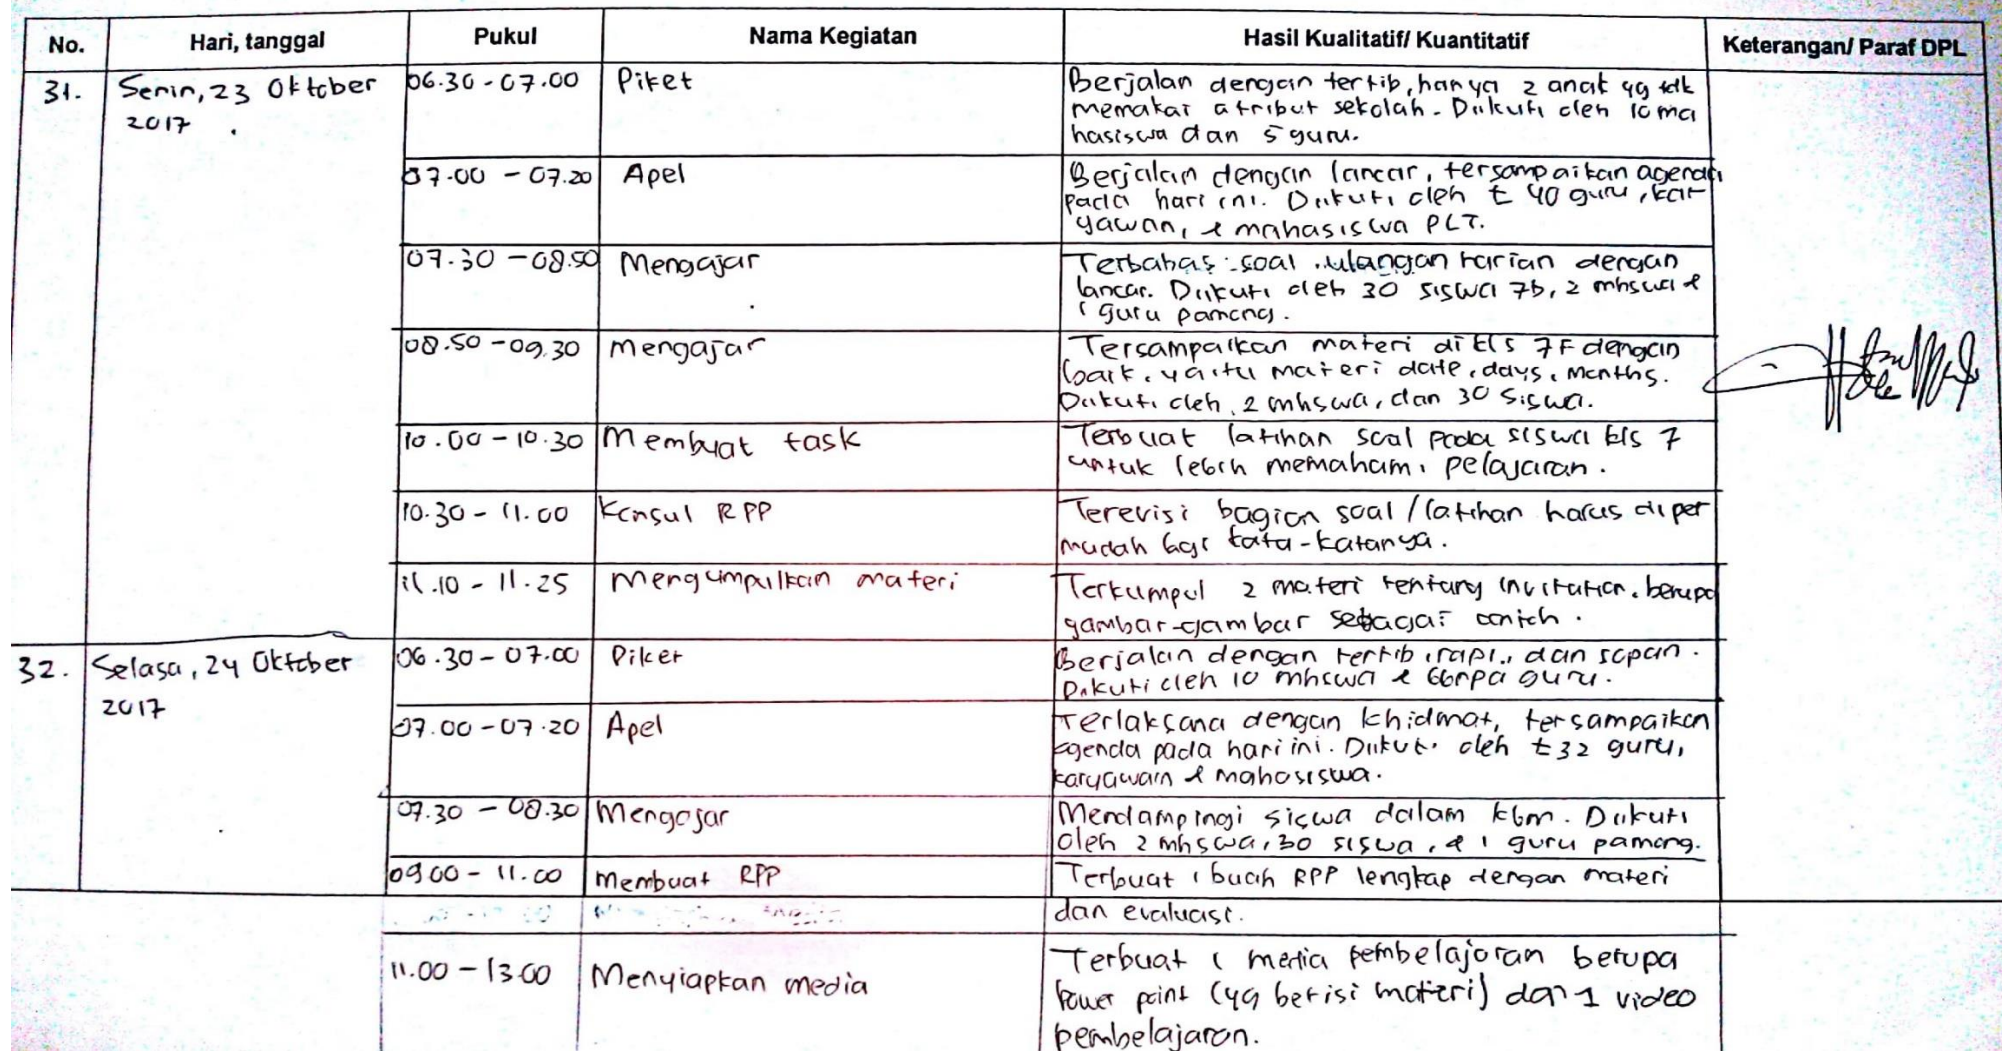 No. Hari, tanggal Pukul Nama Kegiatan Hasil Kualitatif/ Kuantitatif Keterangan/ Paraf DPL
31. Senin, 23 Oktober 2017
06.30 - 07.00 Piket
Berjalan dengan tertib, hanya 2 anak yg tdk
memakai atribut sekolah. Diikuti oleh 10 ma
hasiswa dan 5 guru.
07.00 - 07.20 Apel
Berjalan dengan lancar, tersampaikan agenda
pada hari ini. Diikuti oleh ± 40 guru, kar
yawan, & mahasiswa PLT.
07.30 - 08.50 Mengajar
Terbahas soal ulangan harian dengan
lancar. Diikuti oleh 30 siswa 7b, 2 mhswa &
1 guru pamong.
08.50 - 09.30 Mengajar
Tersampaikan materi di kls 7F dengan
baik, yaitu materi date, days, months.
Diikuti oleh 2 mhswa, dan 30 siswa.
10.00 - 10.30 Membuat task
Terbuat latihan soal pada siswa kls 7
untuk lebih memahami pelajaran.
10.30 - 11.00 Konsul RPP
Terevisi bagian soal / latihan harus diper
mudah lagi kata-katanya.
11.10 - 11.25 Mengumpulkan materi
Terkumpul 2 materi tentang invitation, berupa
gambar-gambar sebagai contoh.
32. Selasa, 24 Oktober 2017
06.30 - 07.00 Piket
Berjalan dengan tertib, rapi, dan sopan.
Diikuti oleh 10 mhswa & bbrpa guru.
07.00 - 07.20 Apel
Terlaksana dengan khidmat, tersampaikan
agenda pada hari ini. Diikuti oleh ± 32 guru,
karyawan & mahasiswa.
07.30 - 08.30 Mengajar
Mendampingi siswa dalam kbm. Diikuti
oleh 2 mhswa, 30 siswa, & 1 guru pamong.
09.00 - 11.00 Membuat RPP
Terbuat 1 buah RPP lengkap dengan materi
dan evaluasi.
11.00 - 13.00 Menyiapkan media
Terbuat 1 media pembelajaran berupa
power point (yg berisi materi) dan 1 video
pembelajaran.